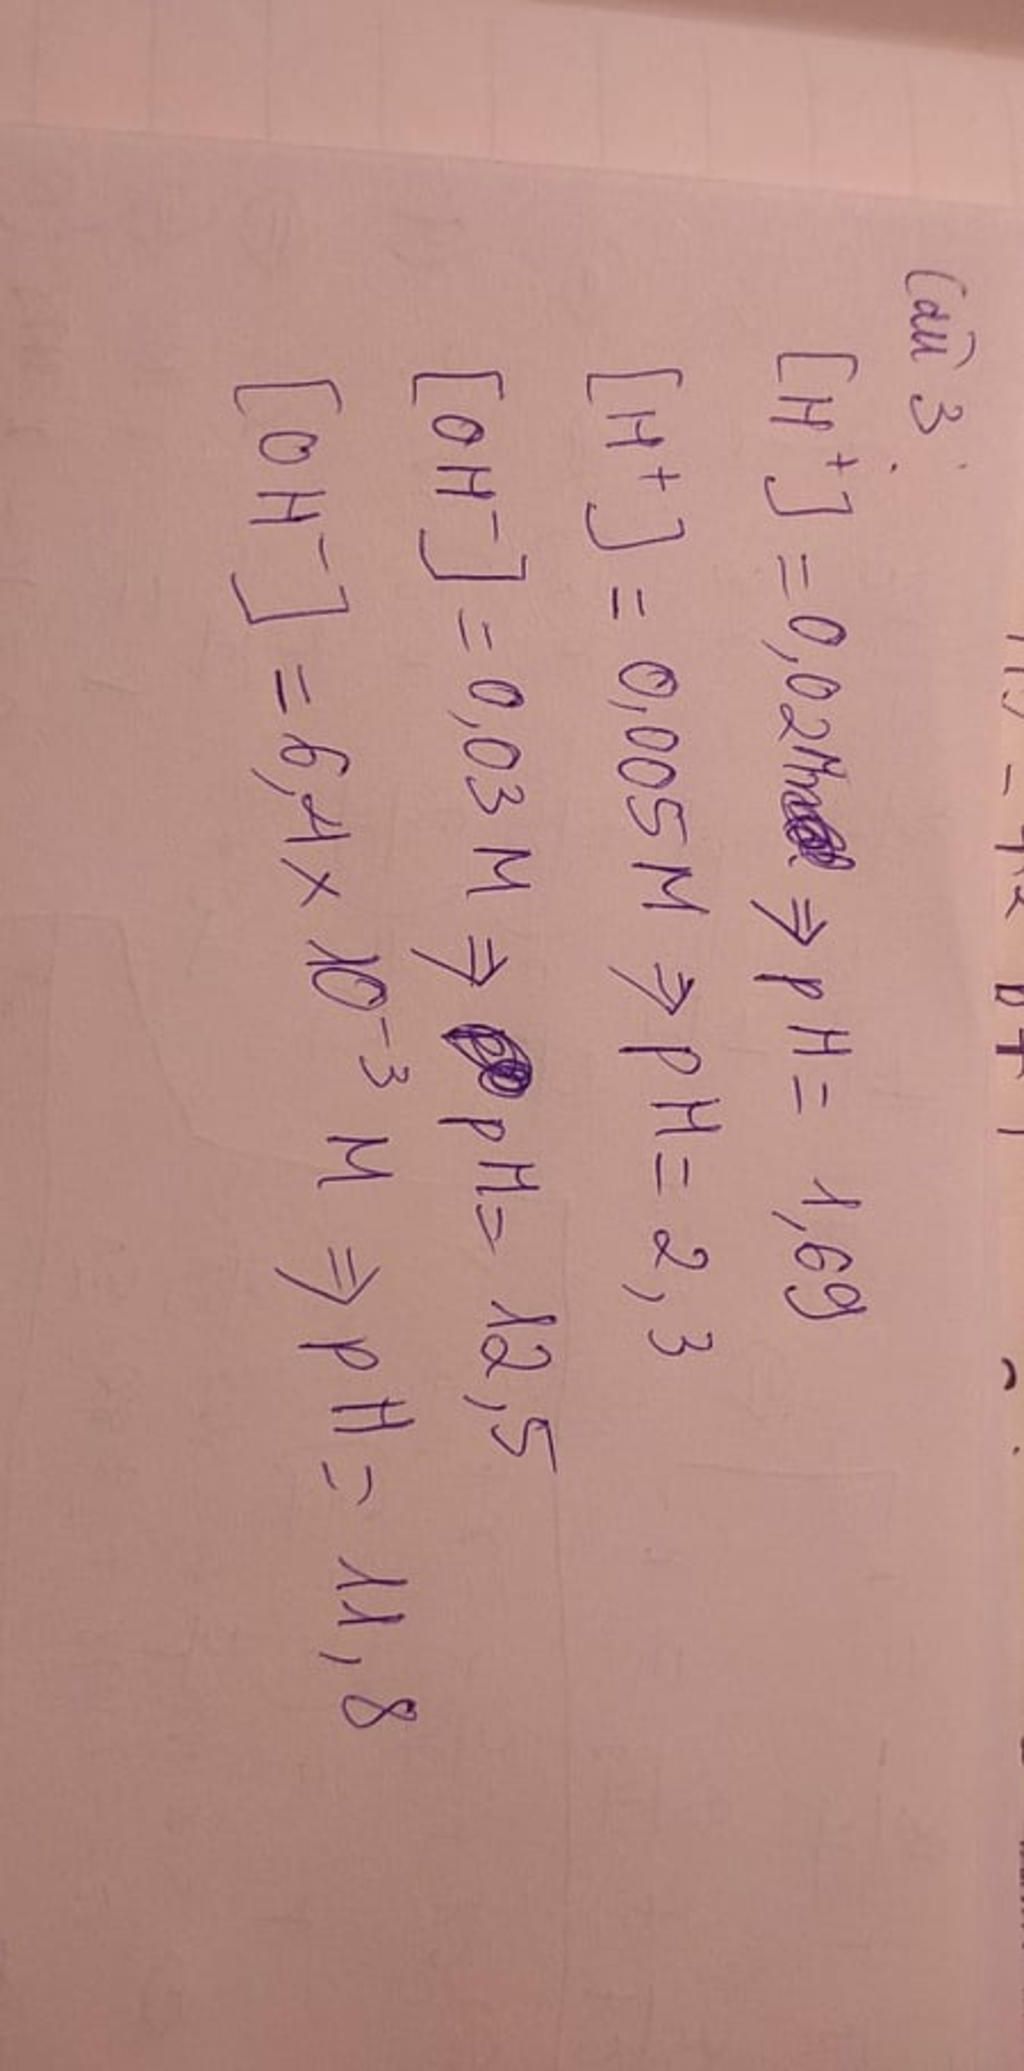 Câu 3:
[H⁺] = 0,02M ⇒ pH = 1,69
[H⁺] = 0,005M ⇒ pH = 2,3
[OH⁻] = 0,03M ⇒ pH = 12,5
[OH⁻] = 6,1 × 10⁻³ M ⇒ pH = 11,8